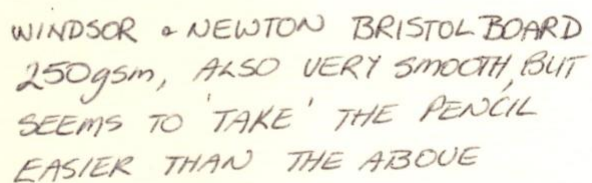 WINDSOR & NEWTON BRISTOL BOARD
250gsm, ALSO VERY SMOOTH, BUT
SEEMS TO 'TAKE' THE PENCIL
EASIER THAN THE ABOVE